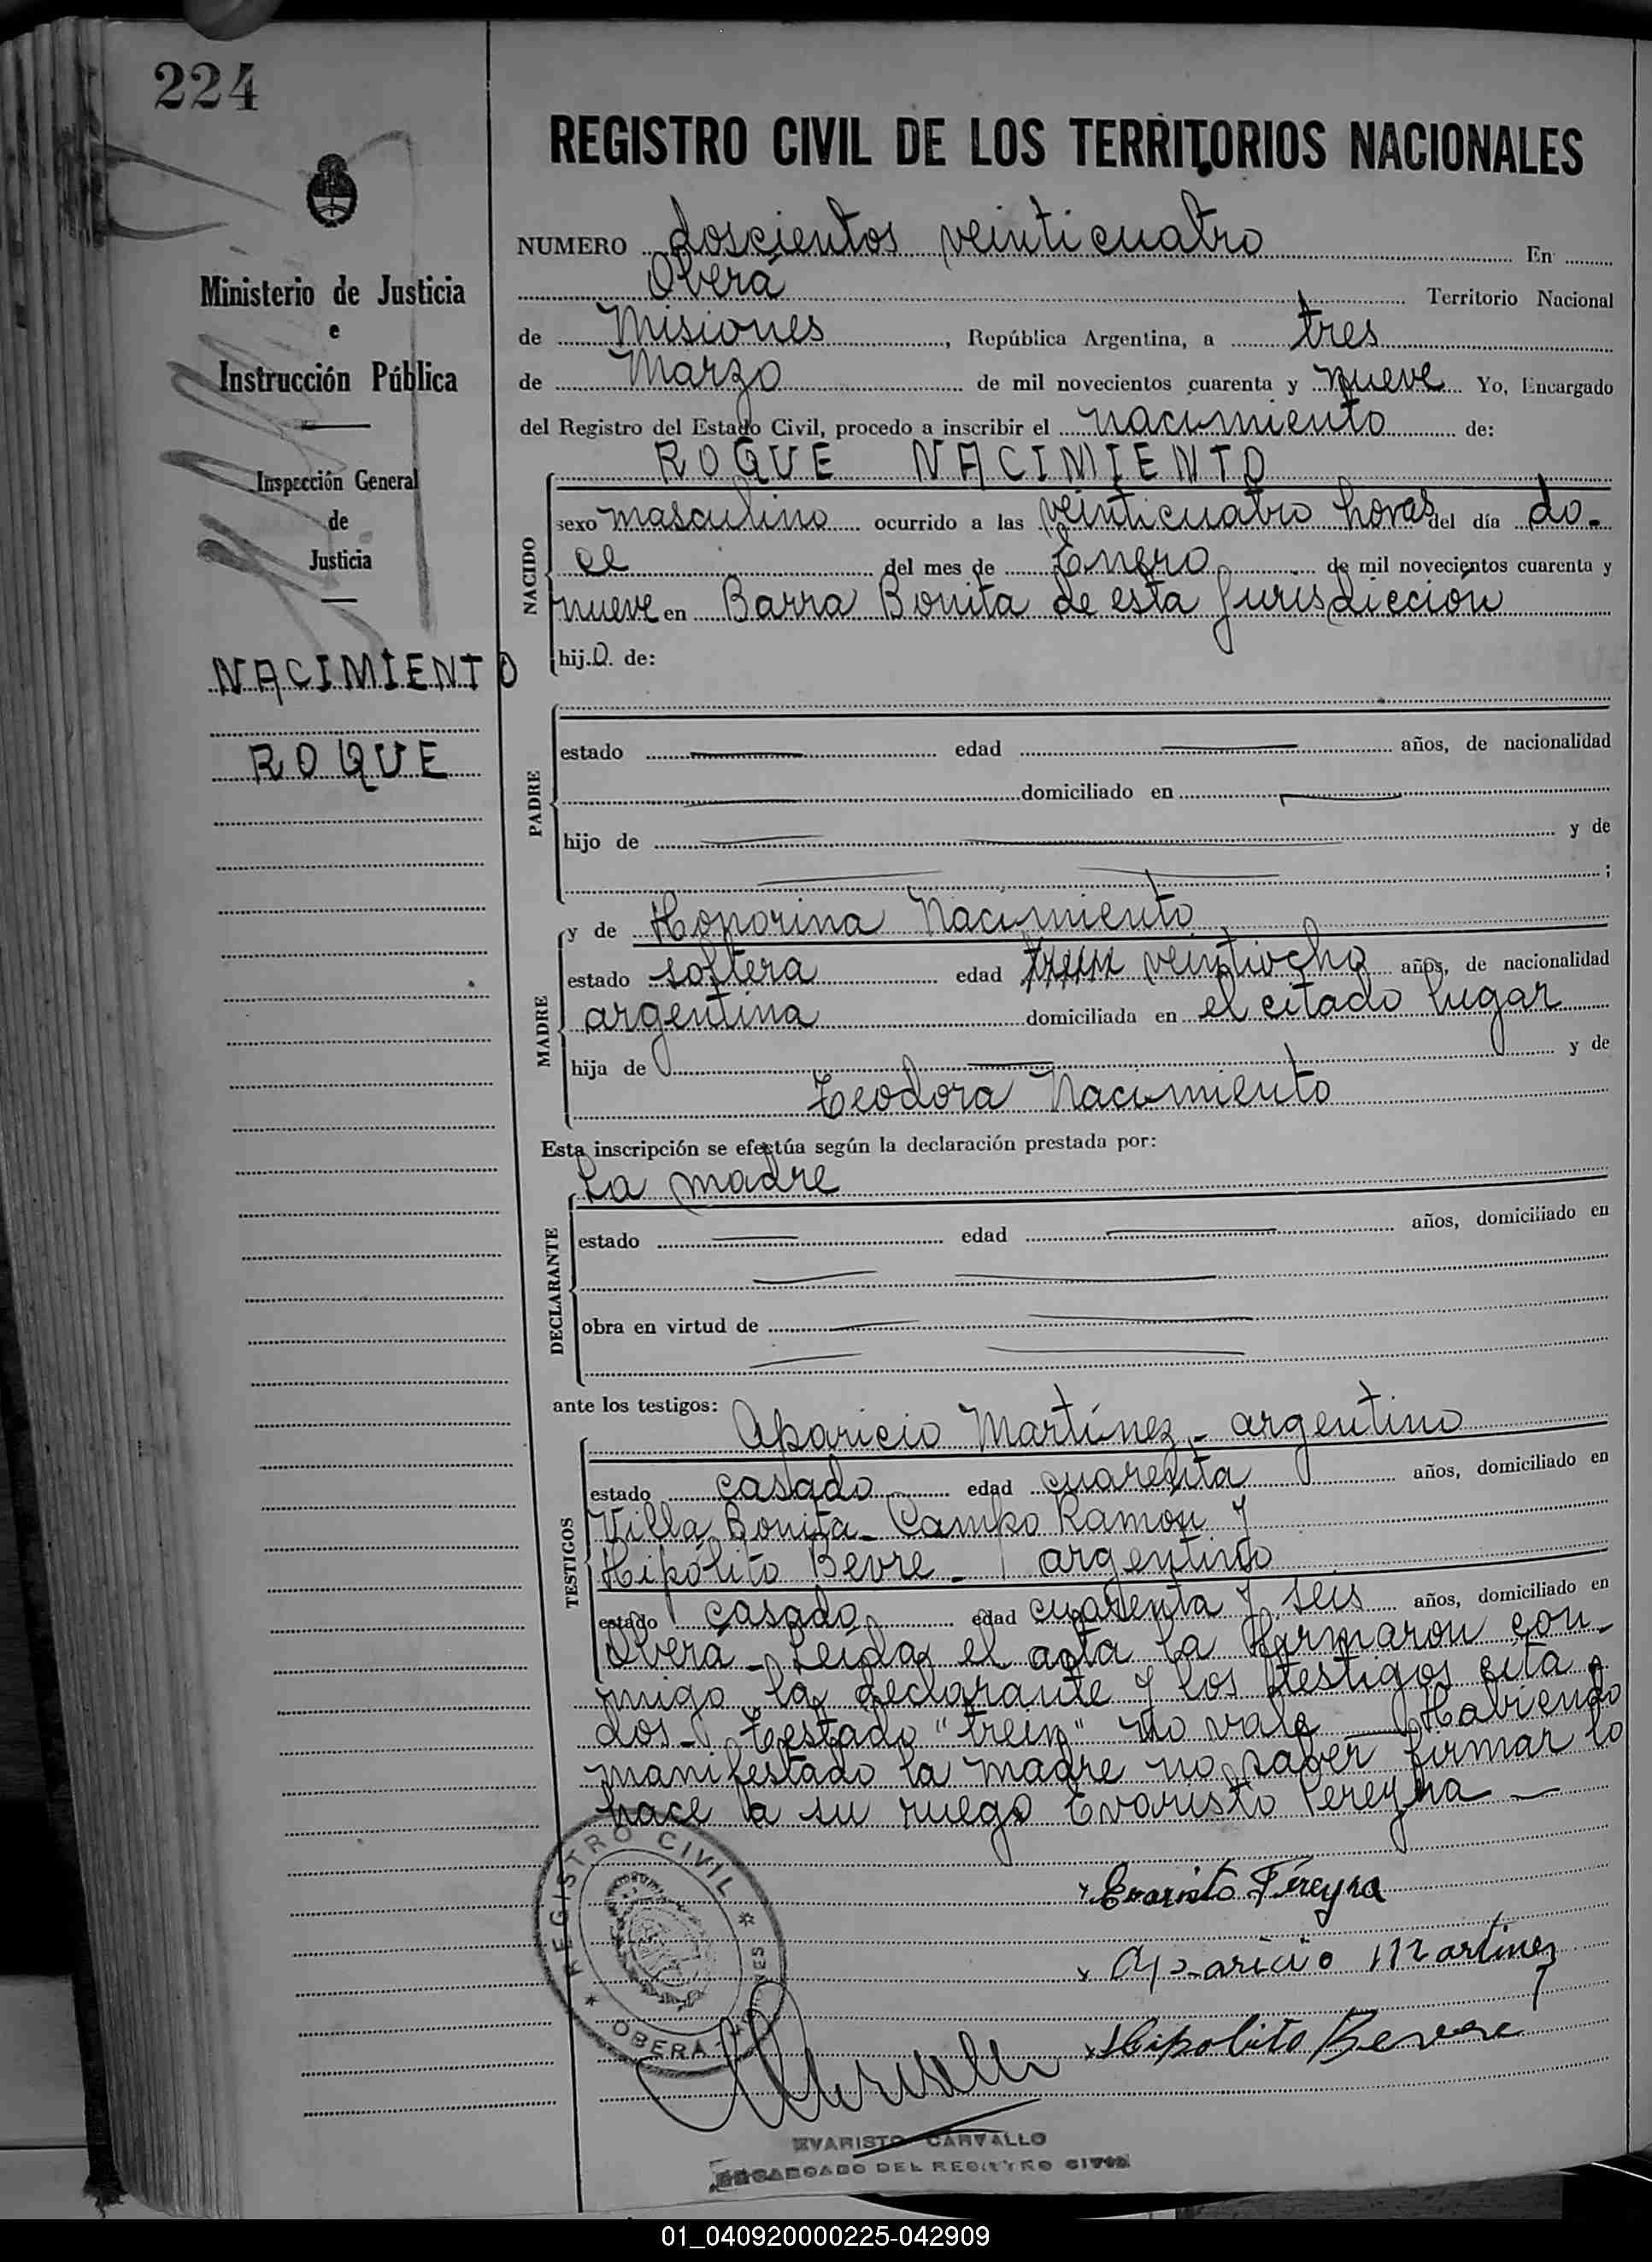 224
REGISTRO CIVIL DE LOS TERRITORIOS NACIONALES
NUMERO doscientos veinticuatro En
Oberá Territorio Nacional
de Misiones, República Argentina, a tres
de Marzo de mil novecientos cuarenta y nueve Yo, Encargado
del Registro del Estado Civil, procedo a inscribir el nacimiento de:
ROQUE NACIMIENTO
Ministerio de Justicia
e
Instrucción Pública
Inspección General
de
Justicia
NACIMIENTO
ROQUE
NACIDO
sexo masculino ocurrido a las veinticuatro horas del día do-
ce del mes de Enero de mil novecientos cuarenta y
nueve en Barra Bonita de esta Jurisdicción
hijo de:
PADRE
estado edad años, de nacionalidad
domiciliado en
hijo de y de
;
MADRE
y de Honorina Nacimiento
estado soltera edad trein veintiocho años, de nacionalidad
argentina domiciliada en el citado lugar
hija de y de
Teodora Nacimiento
Esta inscripción se efectúa según la declaración prestada por:
La madre
DECLARANTE
estado edad años, domiciliado en
obra en virtud de
ante los testigos:
TESTIGOS
Aparicio Martínez - argentino
estado casado edad cuarenta años, domiciliado en
Villa Bonita - Campo Ramon y
Hipólito Bevre - argentino
estado casado edad cuarenta y seis años, domiciliado en
Oberá - Leída el acta la firmaron con-
migo la declarante y los testigos cita-
dos - Testado "trein" no vale - Habiendo
manifestado la madre no saber firmar lo
hace a su ruego Evaristo Pereyra -
Evaristo Pereyra
Aparicio Martinez
Hipolito Bevre
REGISTRO CIVIL
OBERA - MISIONES
EVARISTO CARVALLO
ENCARGADO DEL REGISTRO CIVIL
01_040920000225-042909